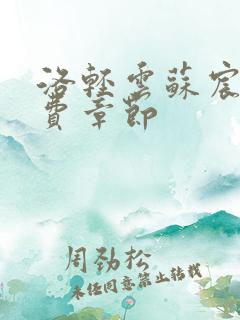 洛軽雲蘇宸
費章節
周劲松
未经同意禁止转载